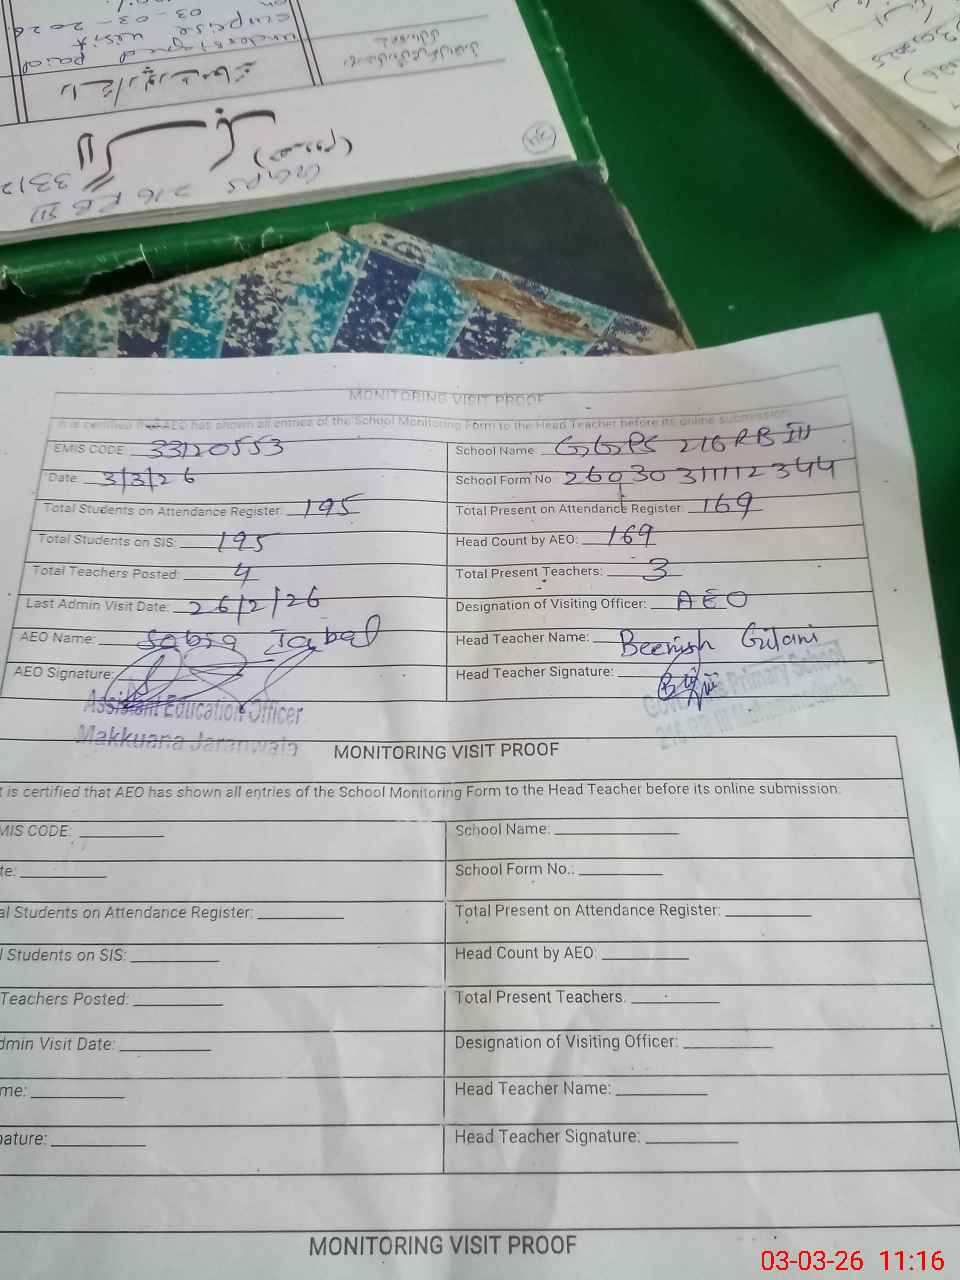 undersigned paid
surprise visit
on 03-03-2026
GGPS 216 RB III 3312
MONITORING VISIT PROOF
It is certified that AEO has shown all entries of the School Monitoring Form to the Head Teacher before its online submission.
EMIS CODE 33120553
School Name GGPS 216 RB III
Date: 3/3/26
School Form No. 26030311112344
Total Students on Attendance Register: 195
Total Present on Attendance Register: 169
Total Students on SIS: 195
Head Count by AEO: 169
Total Teachers Posted: 4
Total Present Teachers: 3
Last Admin Visit Date: 26/2/26
Designation of Visiting Officer: AEO
AEO Name: Sabra Iqbal
Head Teacher Name: Beenish Gilani
AEO Signature:
Head Teacher Signature:
Assistant Education Officer
Makkuana Jaranwala
Primary School
216 RB III
MONITORING VISIT PROOF
t is certified that AEO has shown all entries of the School Monitoring Form to the Head Teacher before its online submission.
MIS CODE:
School Name:
te:
School Form No.:
al Students on Attendance Register:
Total Present on Attendance Register:
l Students on SIS:
Head Count by AEO:
Teachers Posted:
Total Present Teachers.
dmin Visit Date:
Designation of Visiting Officer:
me:
Head Teacher Name:
nature:
Head Teacher Signature:
MONITORING VISIT PROOF
03-03-26 11:16